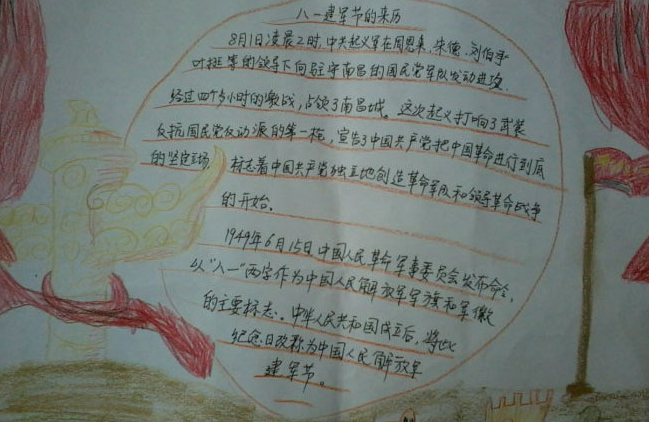 八一建军节的来历
8月1日凌晨2时,中共起义军在周恩来、朱德、刘伯承
叶挺等的领导下向驻守南昌的国民党军队发动进攻.
经过四个多小时的激战,占领了南昌城。这次起义打响了武装
反抗国民党反动派的第一枪,宣告了中国共产党把中国革命进行到底
的坚定立场.标志着中国共产党独立地创造革命军队和领导革命战争
的开始.
1949年6月15日,中国人民革命军事委员会发布命令,
以"八一"两字作为中国人民解放军军旗和军徽
的主要标志。中华人民共和国成立后,将此
纪念日改称为中国人民解放军
建军节。